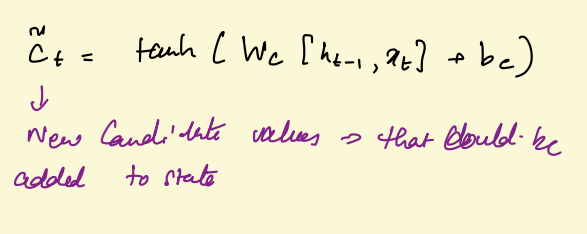 C̃t = tanh ( Wc [ht-1, xt] + bc)
↓
New Candidate values → that could be
added to state